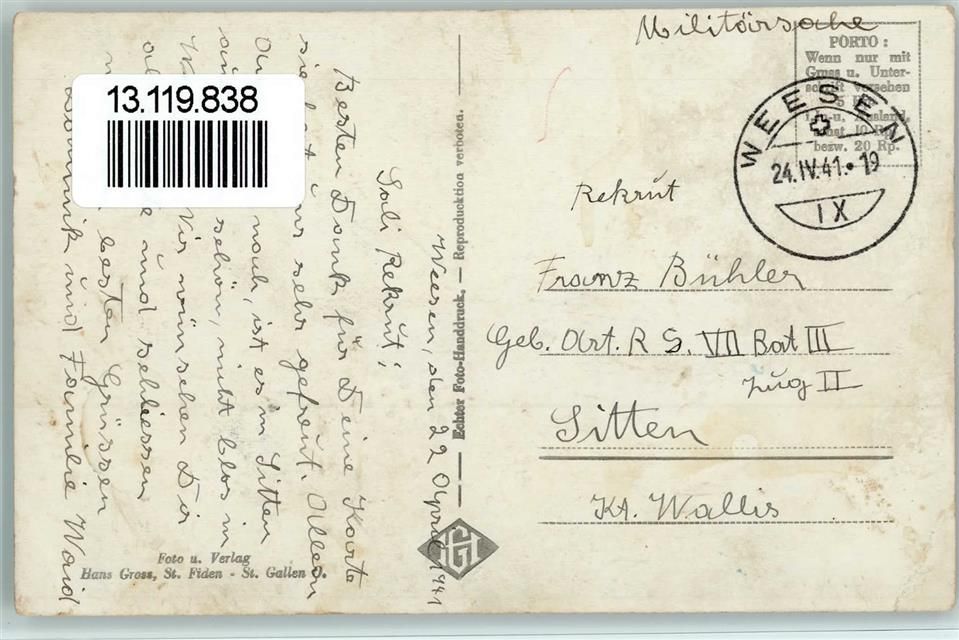 Militärsache
PORTO:
Wenn nur mit
Gruss u. Unter-
schrift versehen
bezw. 20 Rp.
WEESEN
24.IV.41.-19
IX
Rekrut
Franz Bühler
Geb. Art. R S. VII Bat III
Zug II
Sitten
Kt. Wallis
Echter Foto-Handdruck. — Reproduktion verboten.
Weesen, den 22 April 1941
Sali Rekrut!
Besten Dank für Deine Karte
sie hat uns sehr gefreut. Allem
noch, ist es in Sitten
schön, nicht blos in
Wir wünschen Dir
und schliessen
besten Grüssen
und Familie Waid
13.119.838
Foto u. Verlag
Hans Gross, St. Fiden - St. Gallen O.